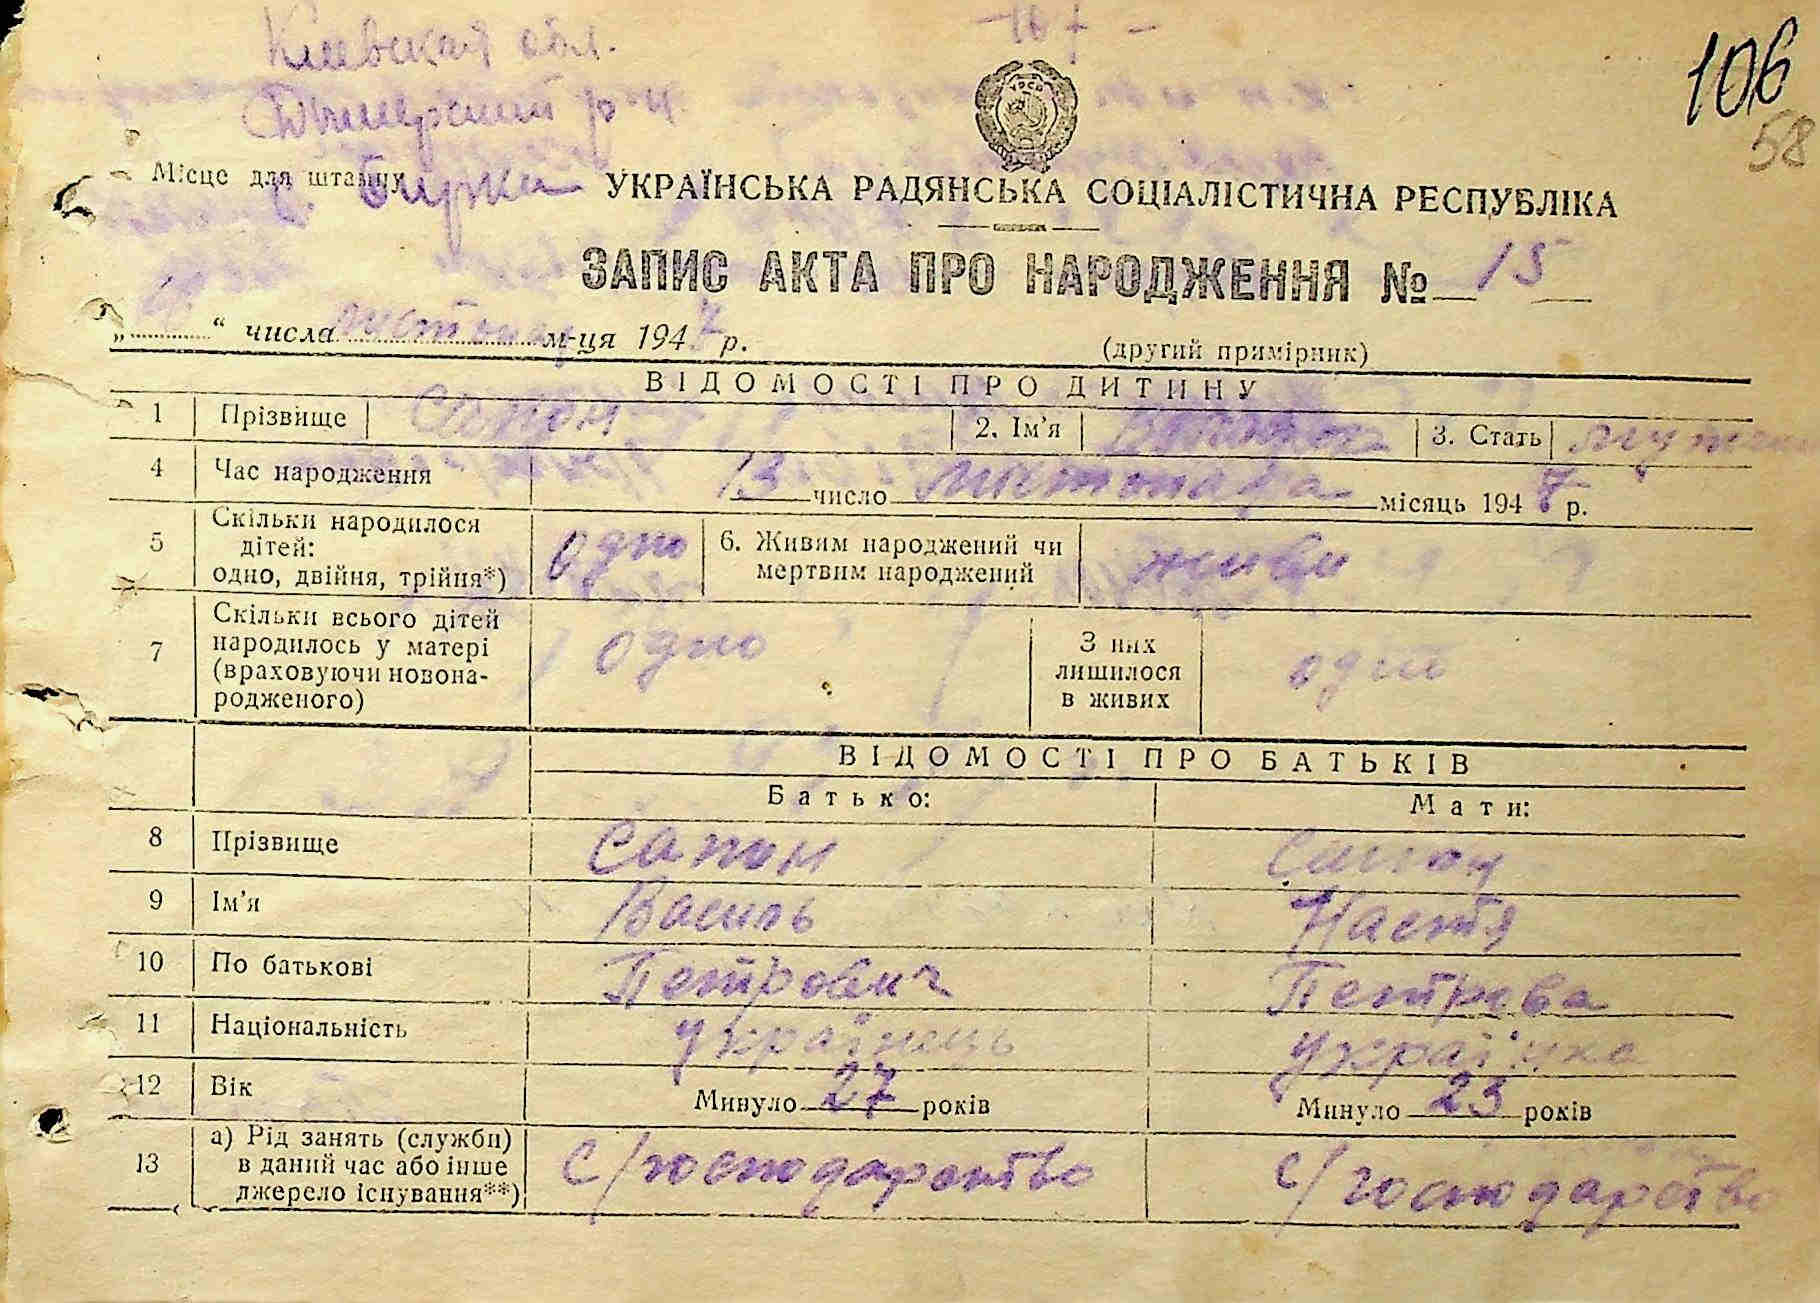 Киевская обл.
106
Дымерский р-н
58
УРСР
Місце для штампу с. УКРАЇНСЬКА РАДЯНСЬКА СОЦІАЛІСТИЧНА РЕСПУБЛІКА
ЗАПИС АКТА ПРО НАРОДЖЕННЯ № 15
„ “ числа листопад м-ця 1947 р. (другий примірник)
ВІДОМОСТІ ПРО ДИТИНУ
1 Прізвище Сапон 2. Ім’я 3. Стать
4 Час народження 13 число листопада місяць 1947 р.
5 Скільки народилося дітей: одно, двійня, трійня*) Одно 6. Живим народжений чи мертвим народжений живим
7 Скільки всього дітей народилось у матері (враховуючи новонародженого) одно З них лишилося в живих одно
ВІДОМОСТІ ПРО БАТЬКІВ
Батько: Мати:
8 Прізвище Сапон Сапон
9 Ім’я Василь Настя
10 По батькові Петрович Петрова
11 Національність українець українка
12 Вік Минуло 27 років Минуло 23 років
13 а) Рід занять (служби) в даний час або інше джерело існування**) с/господарство с/господарство